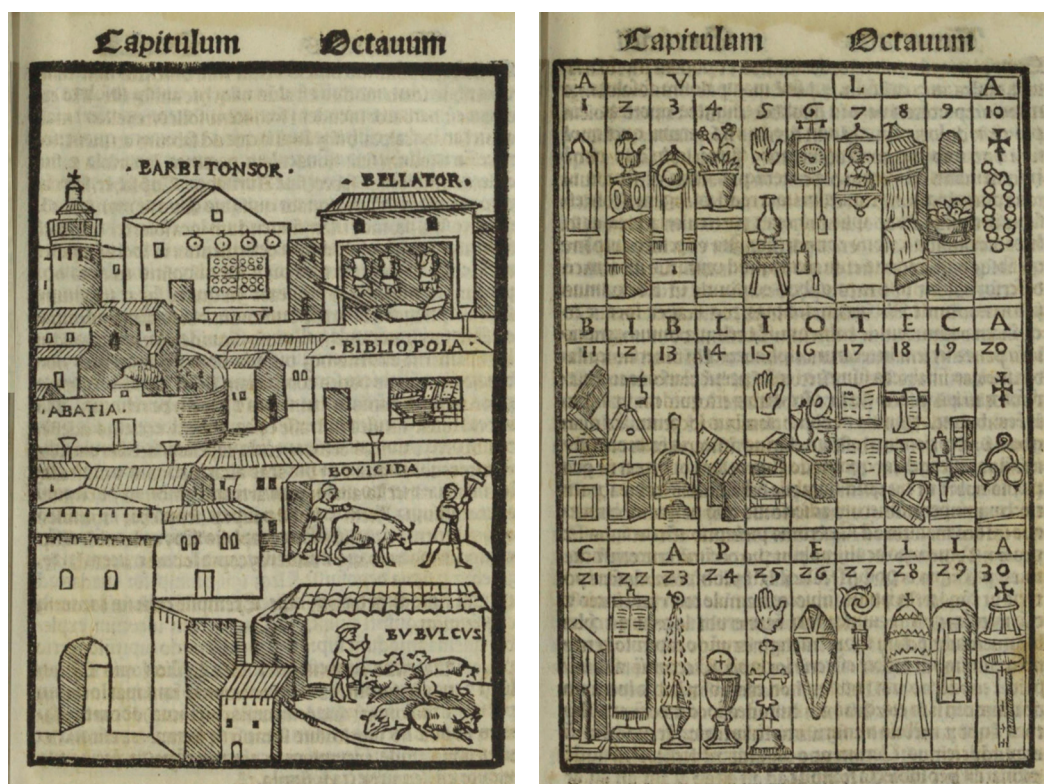 Capitulum Octauum
·BARBITONSOR·
·BELLATOR·
·BIBLIOPOLA·
·ABATIA·
BOVICIDA
BVBVLCVS
Capitulum Octauum
A V L A
1 2 3 4 5 6 7 8 9 10
B I B L I O T E C A
11 12 13 14 15 16 17 18 19 20
C A P E L L A
21 22 23 24 25 26 27 28 29 30